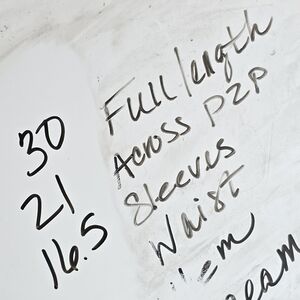 30 Full length
21 Across P2P
16.5 Sleeves
Waist
Hem